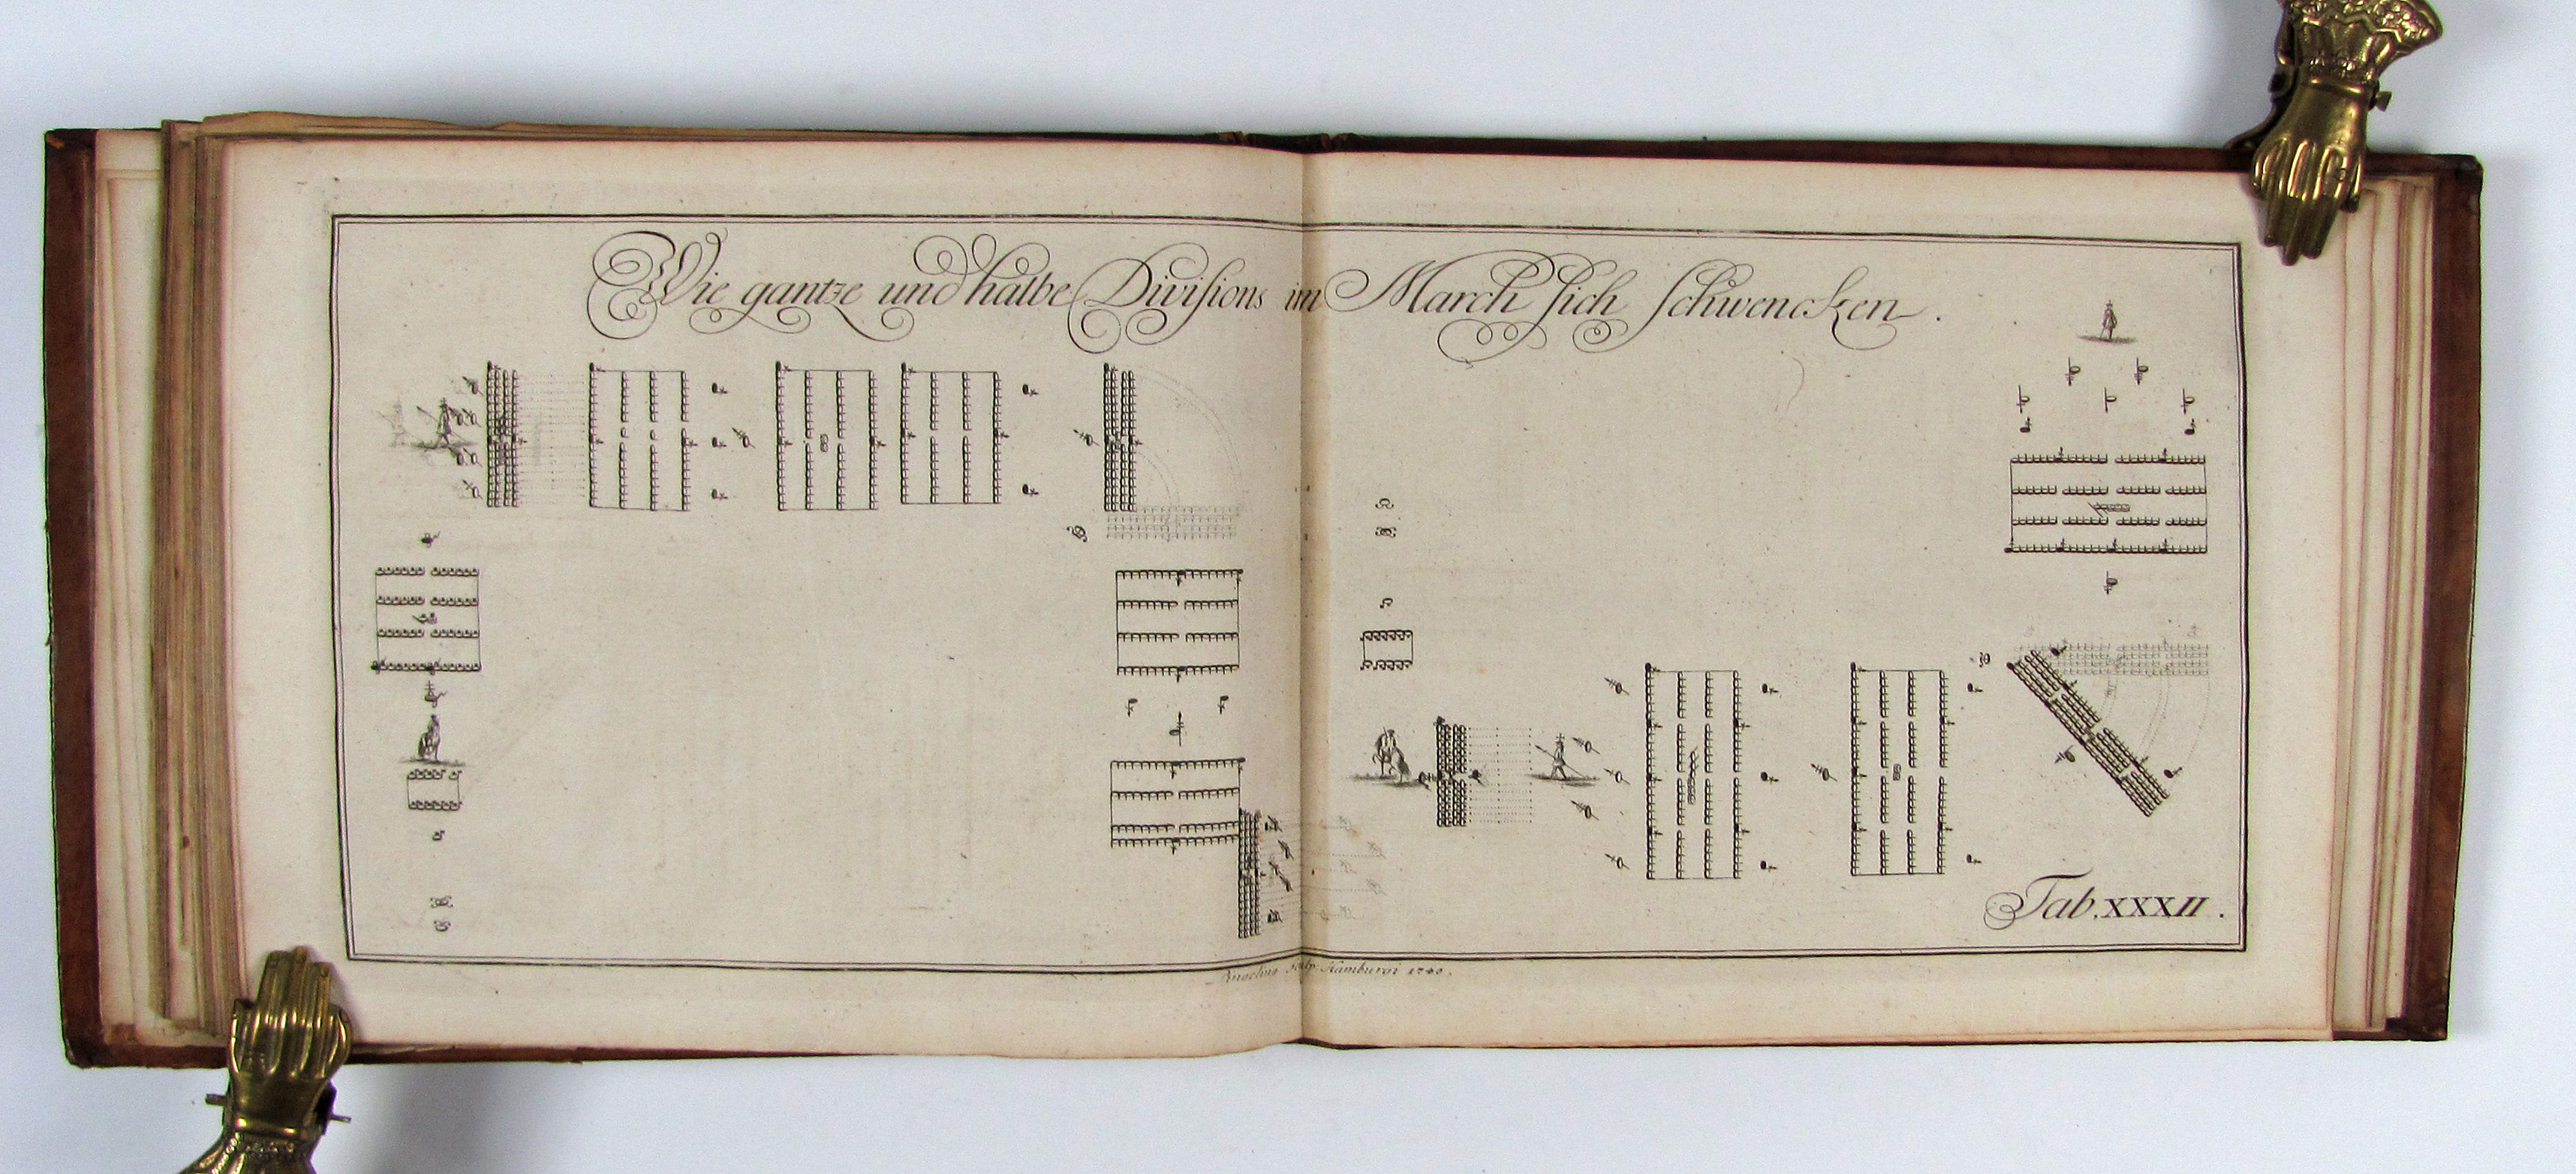 Wie gantze und halbe Divisions im March sich schwencken.
Tab. XXXII.
sculp. Hamburgi 1740.